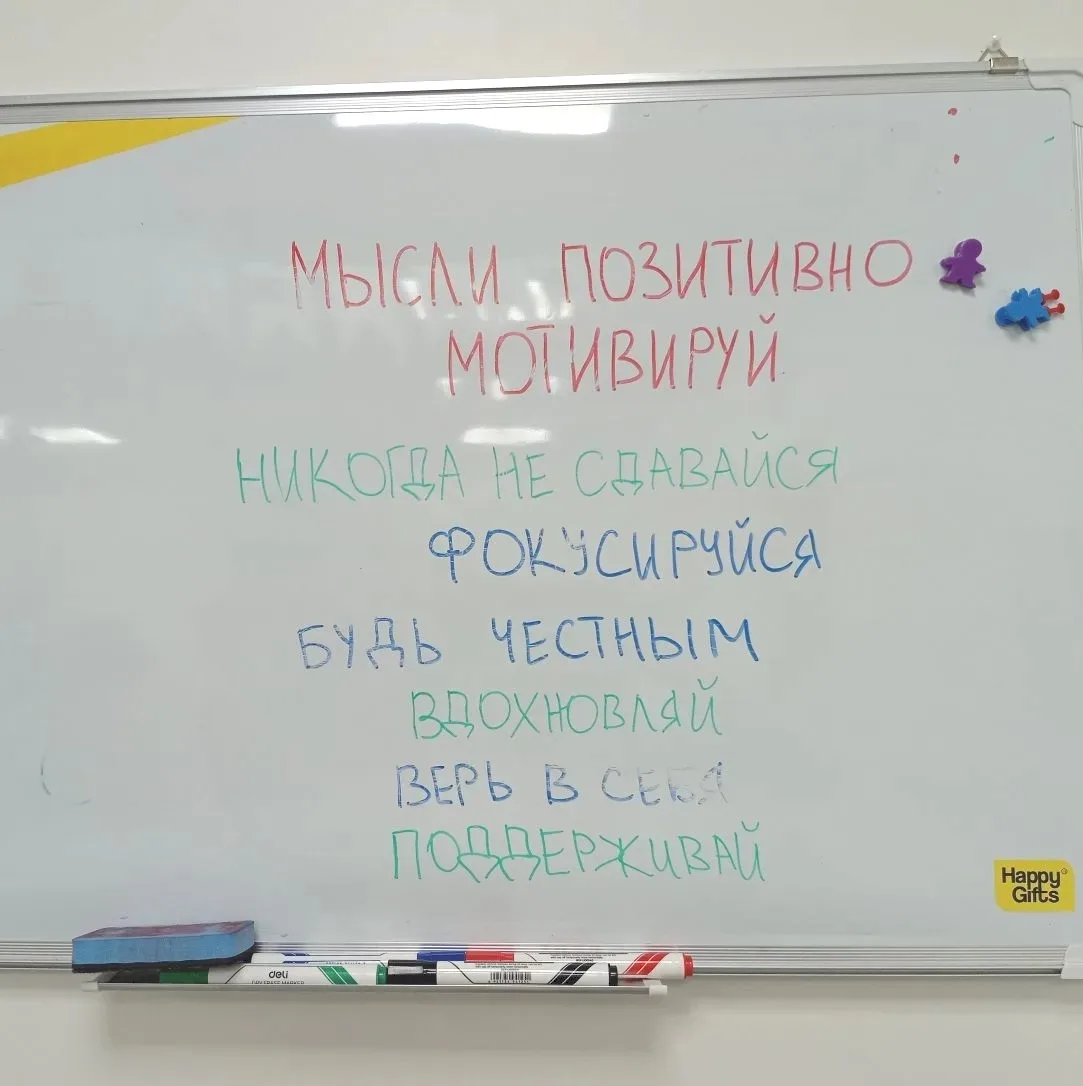 МЫСЛИ ПОЗИТИВНО
МОТИВИРУЙ
НИКОГДА НЕ СДАВАЙСЯ
ФОКУСИРУЙСЯ
БУДЬ ЧЕСТНЫМ
ВДОХНОВЛЯЙ
ВЕРЬ В СЕБЯ
ПОДДЕРЖИВАЙ
Happy
Gifts
deli
DRY ERASE MARKER